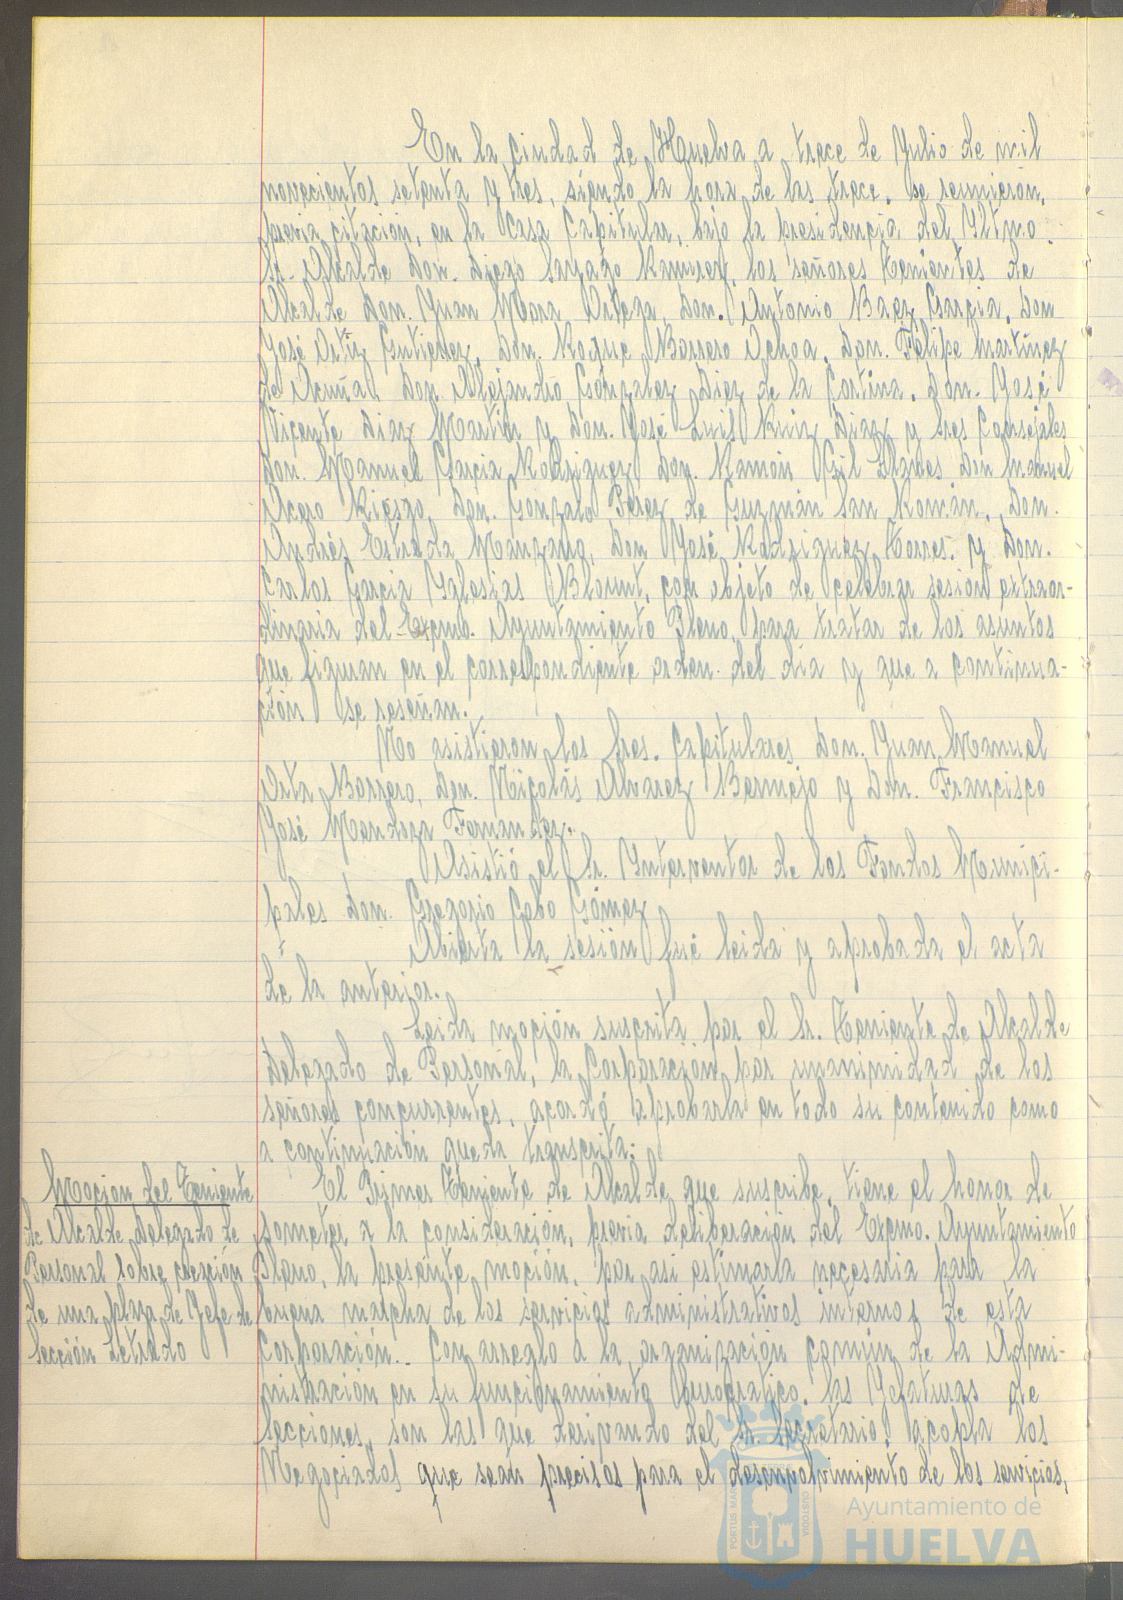 En la Ciudad de Huelva a trece de Julio de mil
novecientos setenta y tres, siendo la hora de las trece, se reunieron,
previa citación, en la Casa Capitular, bajo la presidencia del Iltmo.
Sr. Alcalde Don. Diego Sayago Ramirez, los señores Tenientes de
Alcalde Don. Juan Mora Ortega, Don. Antonio Baez Garcia, Don
José Ortiz Gutierrez, Don. Roque Barrero Ochoa, Don. Felipe Martínez
de Acuña, Don Alejandro Gonzalez Diez de la Cortina, Don. José
Vicente Diaz Martin y Don. José Luis Ruiz Diaz y Sres Concejales
Don. Manuel Garcia Rodriguez Don. Ramón Gil Don Manuel
Acero Riesgo, Don. Gonzalo Perez de Guzmán San Román, Don.
Andrés Estrada Manzano, Don José Rodriguez Torres. y Don.
Carlos Garcia Yglesias Blount, con objeto de celebrar sesión extraor-
dinaria del Excmo. Ayuntamiento Pleno, para tratar de los asuntos
que figuran en el correspondiente orden del dia y que a continua-
ción se reseñan.
No asistieron los Sres. Capitulares Don. Juan Manuel
Orta Borrero, Don. Nicolás Alvarez Bermejo y Don. Francisco
José Mendoza Fernandez.
Asistió el Sr. Interventor de los Fondos Munici-
pales Don. Gregorio Cabo Gómez
Abierta la sesión fué leida y aprobada el acta
de la anterior.
Leida moción suscrita por el Sr. Teniente de Alcalde
Delegado de Personal, la Corporación por unanimidad de los
señores concurrentes, acordó aprobarla en todo su contenido como
a continuación queda transcrita:
Mocion del Teniente
de Alcalde, Delegado de
Personal sobre creación
de una plaza de Jefe de
Sección Letrado
El Primer Teniente de Alcalde que suscribe, tiene el honor de
someter a la consideración, previa deliberación del Excmo. Ayuntamiento
Pleno, la presente moción, por asi estimarla necesaria para la
buena marcha de los servicios administrativos internos de esta
Corporación.- Con arreglo a la organización común de la Admi-
nistración en su funcionamiento burocratico, las Jefaturas de
Secciones, son las que derivando del Sr. Secretario, acopla los
Negociados que sean precisos para el desenvolvimiento de los servicios,
Ayuntamiento de
HUELVA